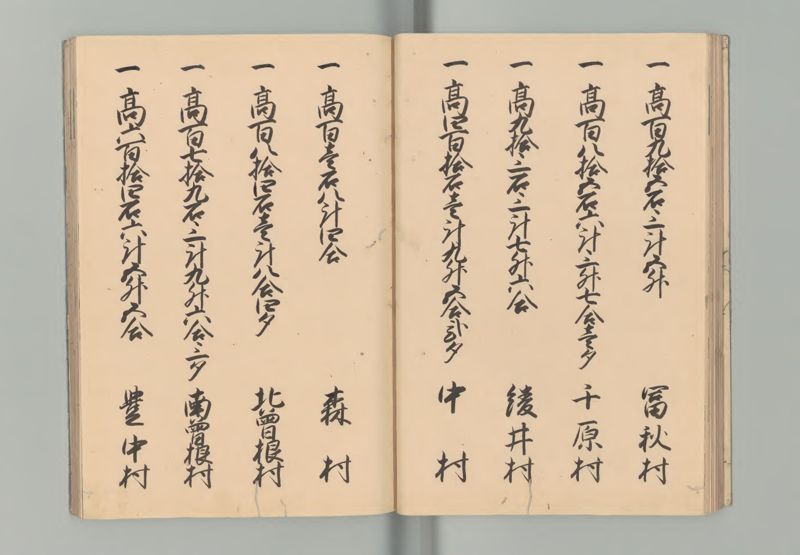 一 高百九拾六石三斗六升 冨秋村
一 高百八拾六石六斗三升七合壱夕 千原村
一 高九拾三石三斗七升六合 綾井村
一 高四百拾石壱斗九升六合弐夕 中村
一 高百壱石八斗四合 森村
一 高百八拾四石壱斗八合四夕 北曽根村
一 高百七拾九石二斗九升六合三夕 南曽根村
一 高六百拾四石六斗六升六合 豊中村